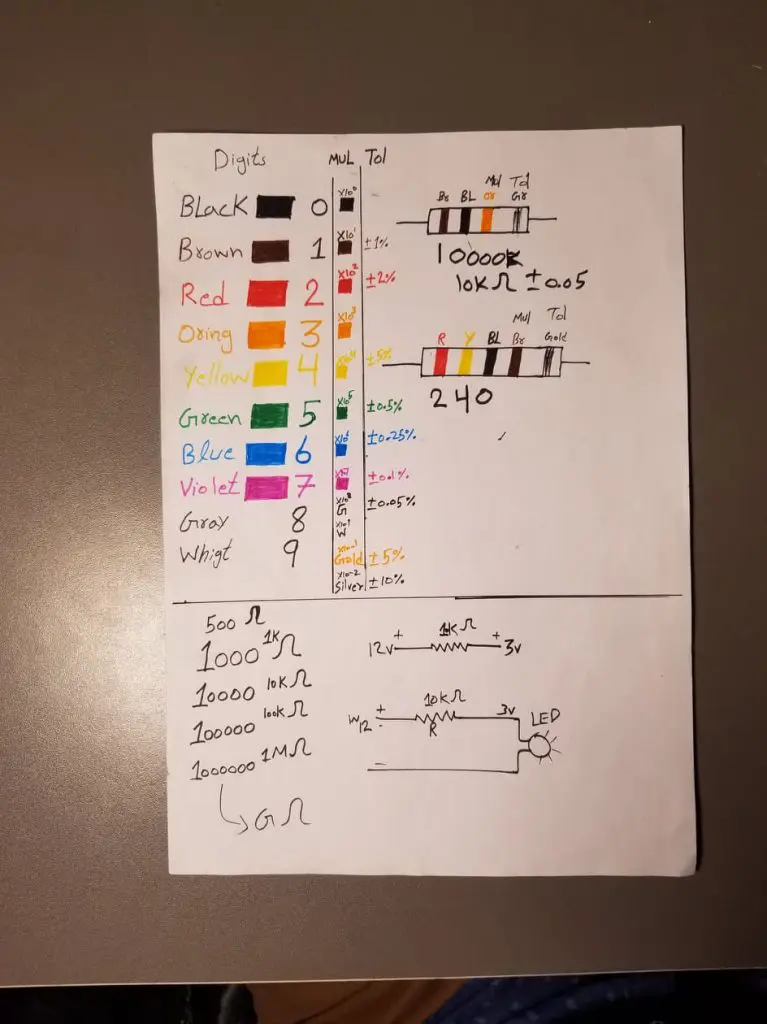 Digits MUL Tol
BLack 0 X10⁰
Brown 1 X10¹ ±1%
Red 2 X10² ±2%
Oring 3 X10³
Yellow 4 X10⁴ ±5%
Green 5 X10⁵ ±0.5%
Blue 6 X10⁶ ±0.25%
Violet 7 X10⁷ ±0.1%
Gray 8 X10⁸ G ±0.05%
Whigt 9 W
X10-1 Gold ±5%
X10-2 Silver ±10%
Mul Tol
Br BL Or Gr
10000K
10KΩ ±0.05
Mul Tol
R Y BL Br Gold
240
500 Ω
1000 1KΩ
10000 10KΩ
100000 100kΩ
1000000 1MΩ
GΩ
12v + + 3v
12 + - 10KΩ 3v LED
R